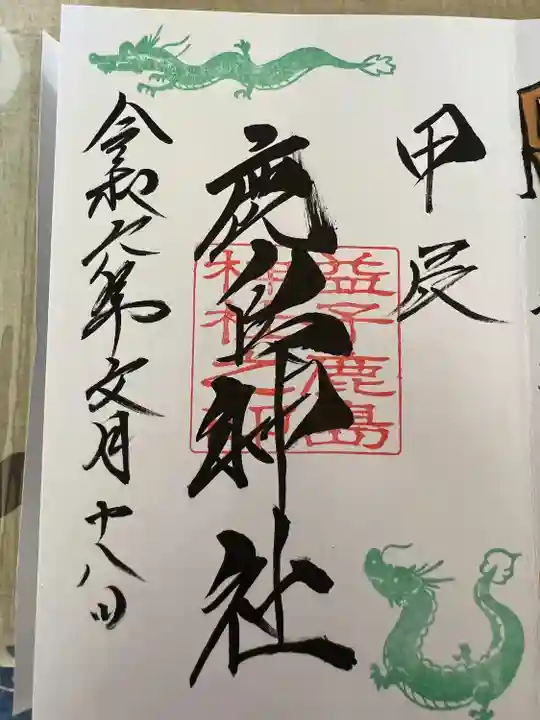 甲辰
鹿島神社
益子鹿島
神社之印
令和六年文月十八日